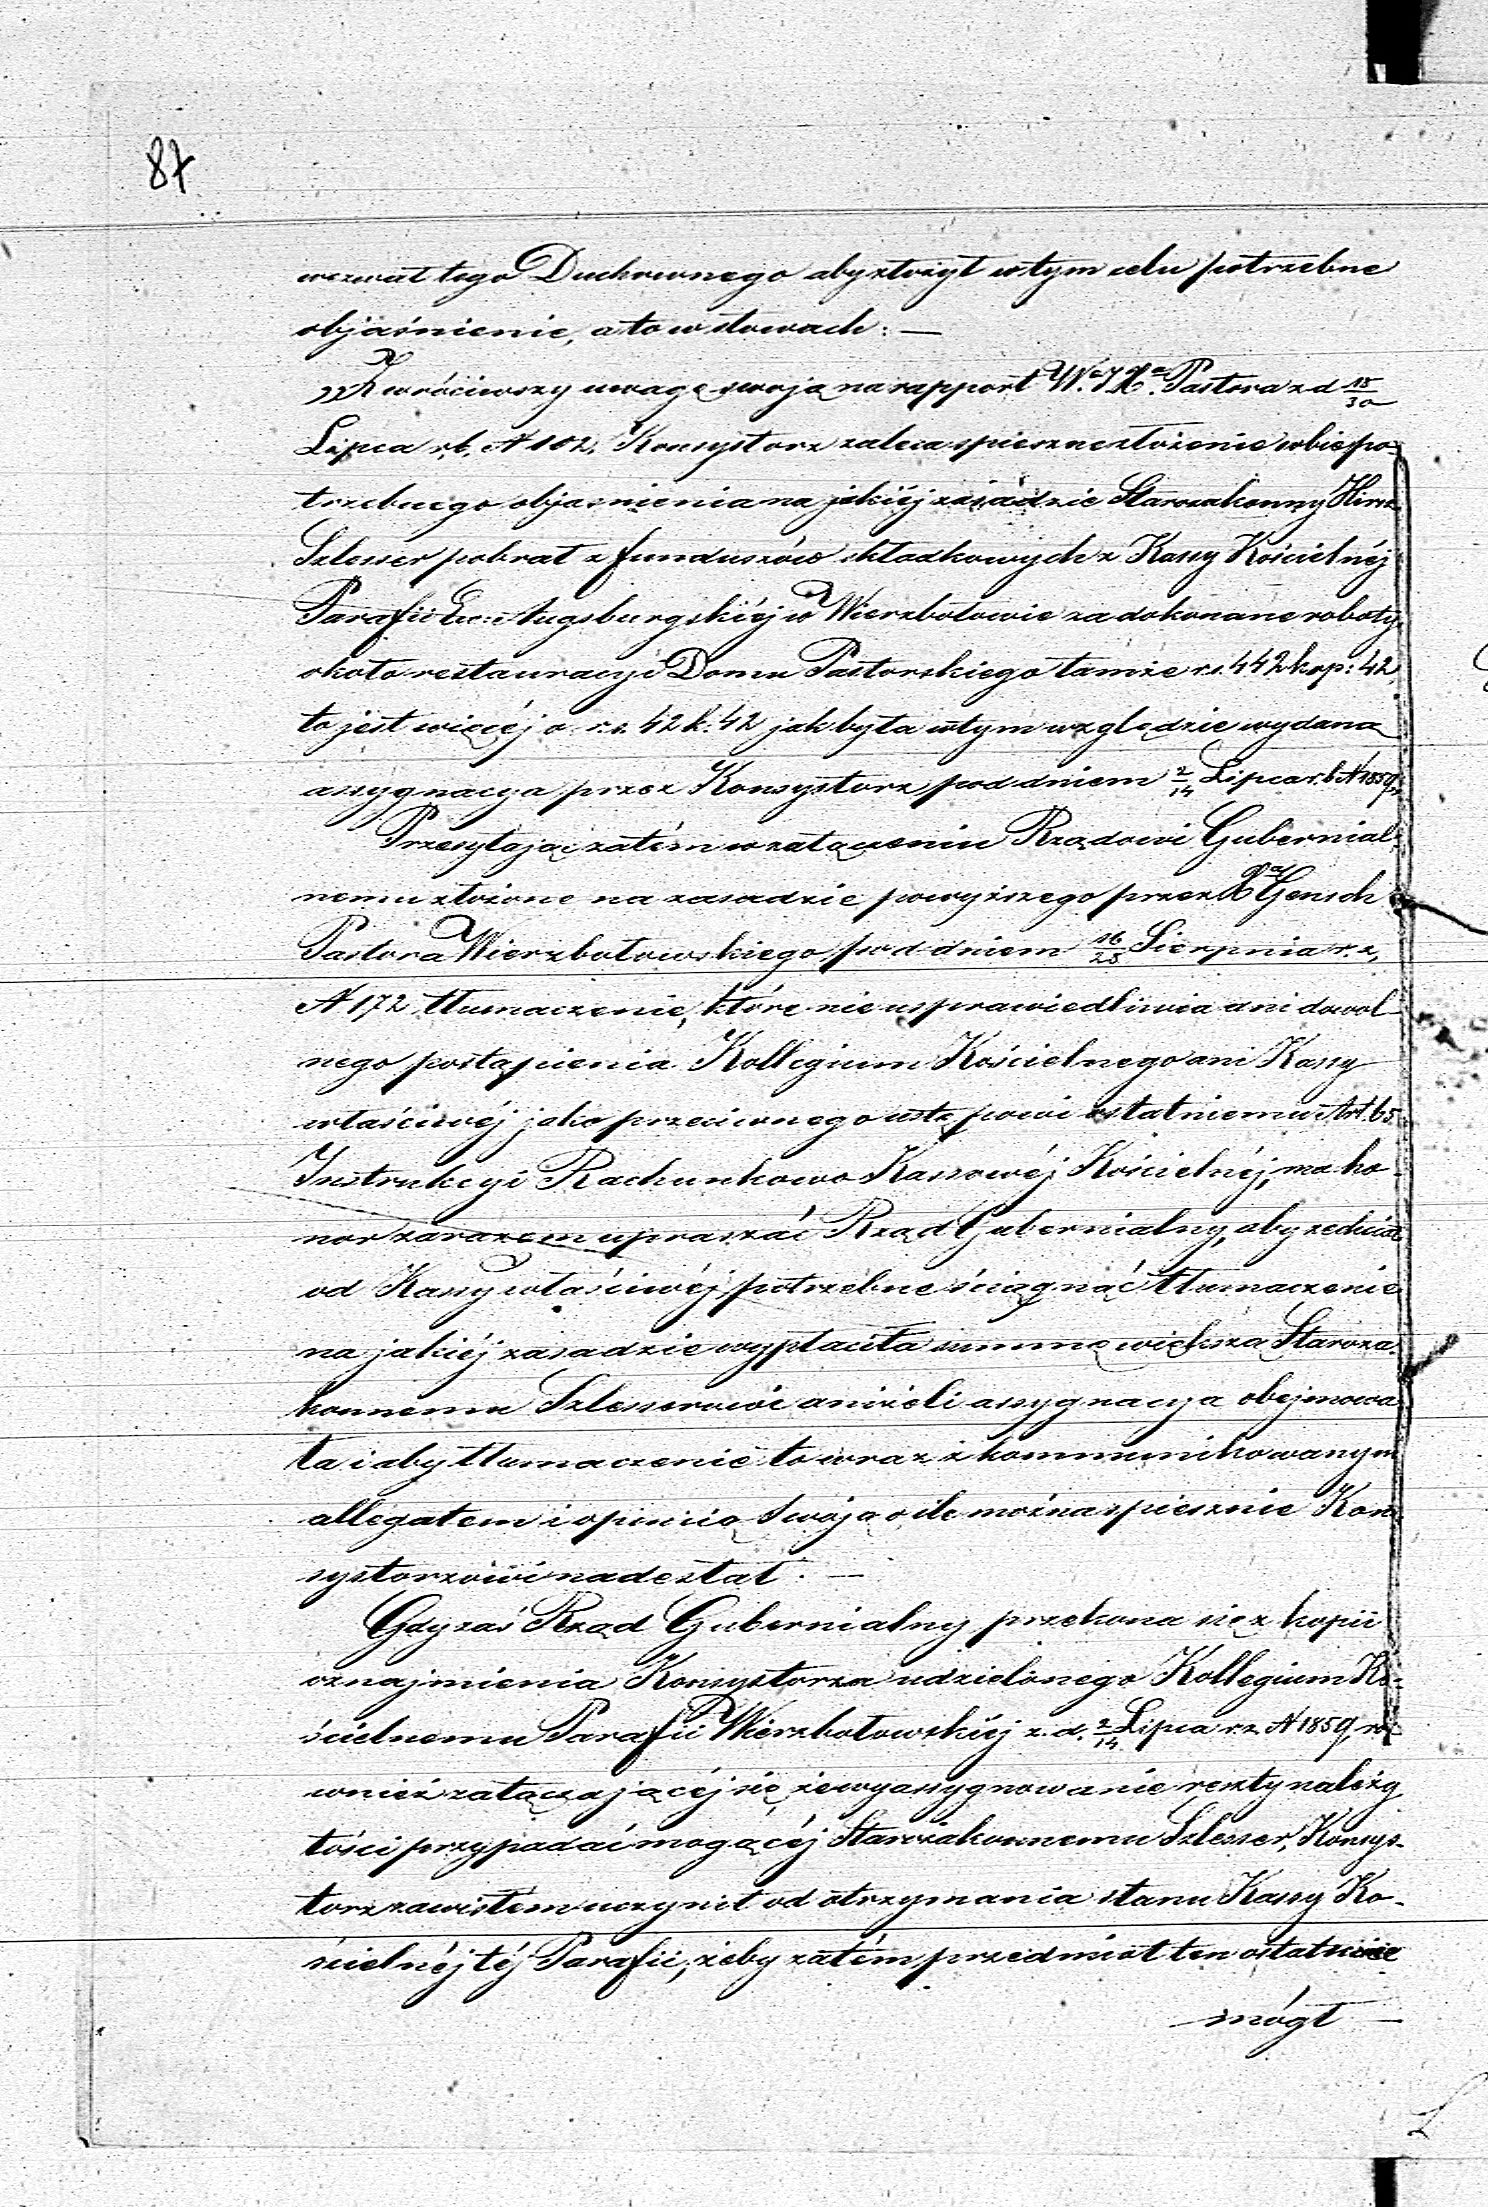 87
wezwał tego Duchownego aby złożył w tym celu potrzebne
objaśnienie, a to w słowach: —
„Zwróciwszy uwagę swoją na rapport W. JX. Pastora z d 18/30
Lipca r.b. N 102. Konsystorz zaleca spieszne złożenie sobie po-
trzebnego objasnienia na jakiéj zasadzie Starozakonny Hirsz
Szlesser pobrał z funduszów składkowych z Kassy Kościelnéj
Parafii Ew: Augsburgskiéj w Wierzbołowie za dokonane roboty
około restauracyi Domu Pastorskiego tamże r.s. 442 kop: 42,
to jest więcéj o r.s. 42 k. 42 jak była w tym względzie wydana
assygnacya przez Konsystorz pod dniem 2/14 Lipca r.b. N 1859„
Przesyłając zatém w załączeniu Rządowi Gubernial-
nemu złożone na zasadzie powyższego przez Xa Gensch
Pastora Wierzbołowskiego pod dniem 16/28 Sierpnia r.z.
N 172 tłumaczenie, które nie usprawiedliwia ani dowol-
nego postąpienia Kollegium Kościelnego ani Kassy
właściwéj jako przeciwnego ustępowi ostatniemu Art. 65
Instrukcyi Rachunkowo Kassowéj Kościelnéj, ma ho-
nor zarazem upraszać Rząd Gubernialny, aby zechciał
od Kassy właściwéj potrzebne ściągnąć tłumaczenie
na jakiéj zasadzie wypłaciła summę większą Staroza-
konnemu Szlesserowi aniżeli assygnacya obejmowa-
ła i aby tłumaczenie to wraz z kommunikowanym
allegatem i opinią swoją o ile można spiesznie Kon-
systorzowi nadesłał. —
Gdy zaś Rząd Gubernialny przekona się z kopii
oznajmienia Konsystorza udzielonego Kollegium Ko-
ścielnemu Parafii Wierzbołowskiéj z. d. 2/14 Lipca r.z. N 1859, ró-
wnież załączającéj się, że wyassygnowanie reszty należy
tości przypadać mogącéj Starozakonnemu Szlesser, Konsys-
torz zawisłem uczynił od otrzymania stanu Kassy Ko-
ścielnéj téj Parafii, żeby zatém przedmiot ten ostatecznie
mógł —